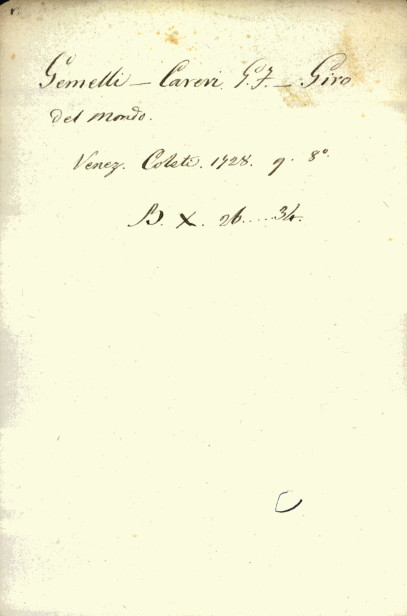 Gemelli - Careri G. F. - Giro
del Mondo.
Venez. Coleti. 1728. 9. 8°.
B. X. 26....34.
C